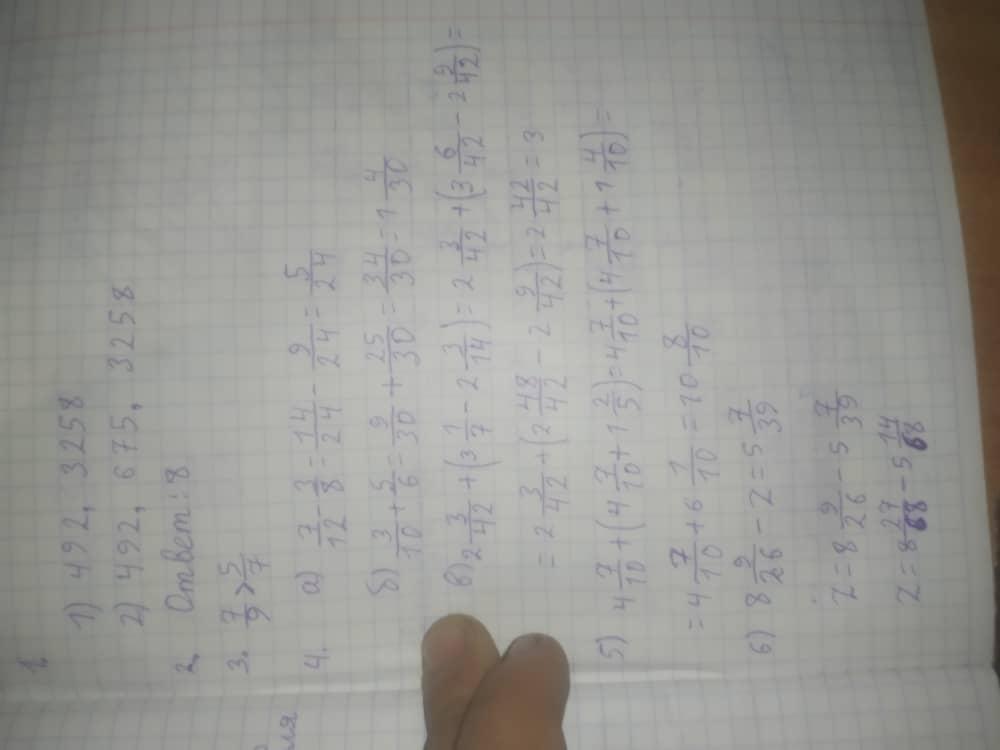 1.
1) 492, 3258
2) 492, 675, 3258
2. Ответ: 8
3. 7/9 > 5/7
4. а) 7/12 - 3/8 = 14/24 - 9/24 = 5/24
б) 3/10 + 5/6 = 9/30 + 25/30 = 34/30 = 1 4/30
в) 2 3/42 + (3 1/7 - 2 3/14) = 2 3/42 + (3 6/42 - 2 9/42) =
= 2 3/42 + (2 48/42 - 2 9/42) = 2 42/42 = 3
5) 4 7/10 + (4 7/10 + 1 2/5) = 4 7/10 + (4 7/10 + 1 4/10) =
= 4 7/10 + 6 1/10 = 10 8/10
6) 8 9/26 - z = 5 7/39
z = 8 9/26 - 5 7/39
z = 8 27/68 - 5 14/68